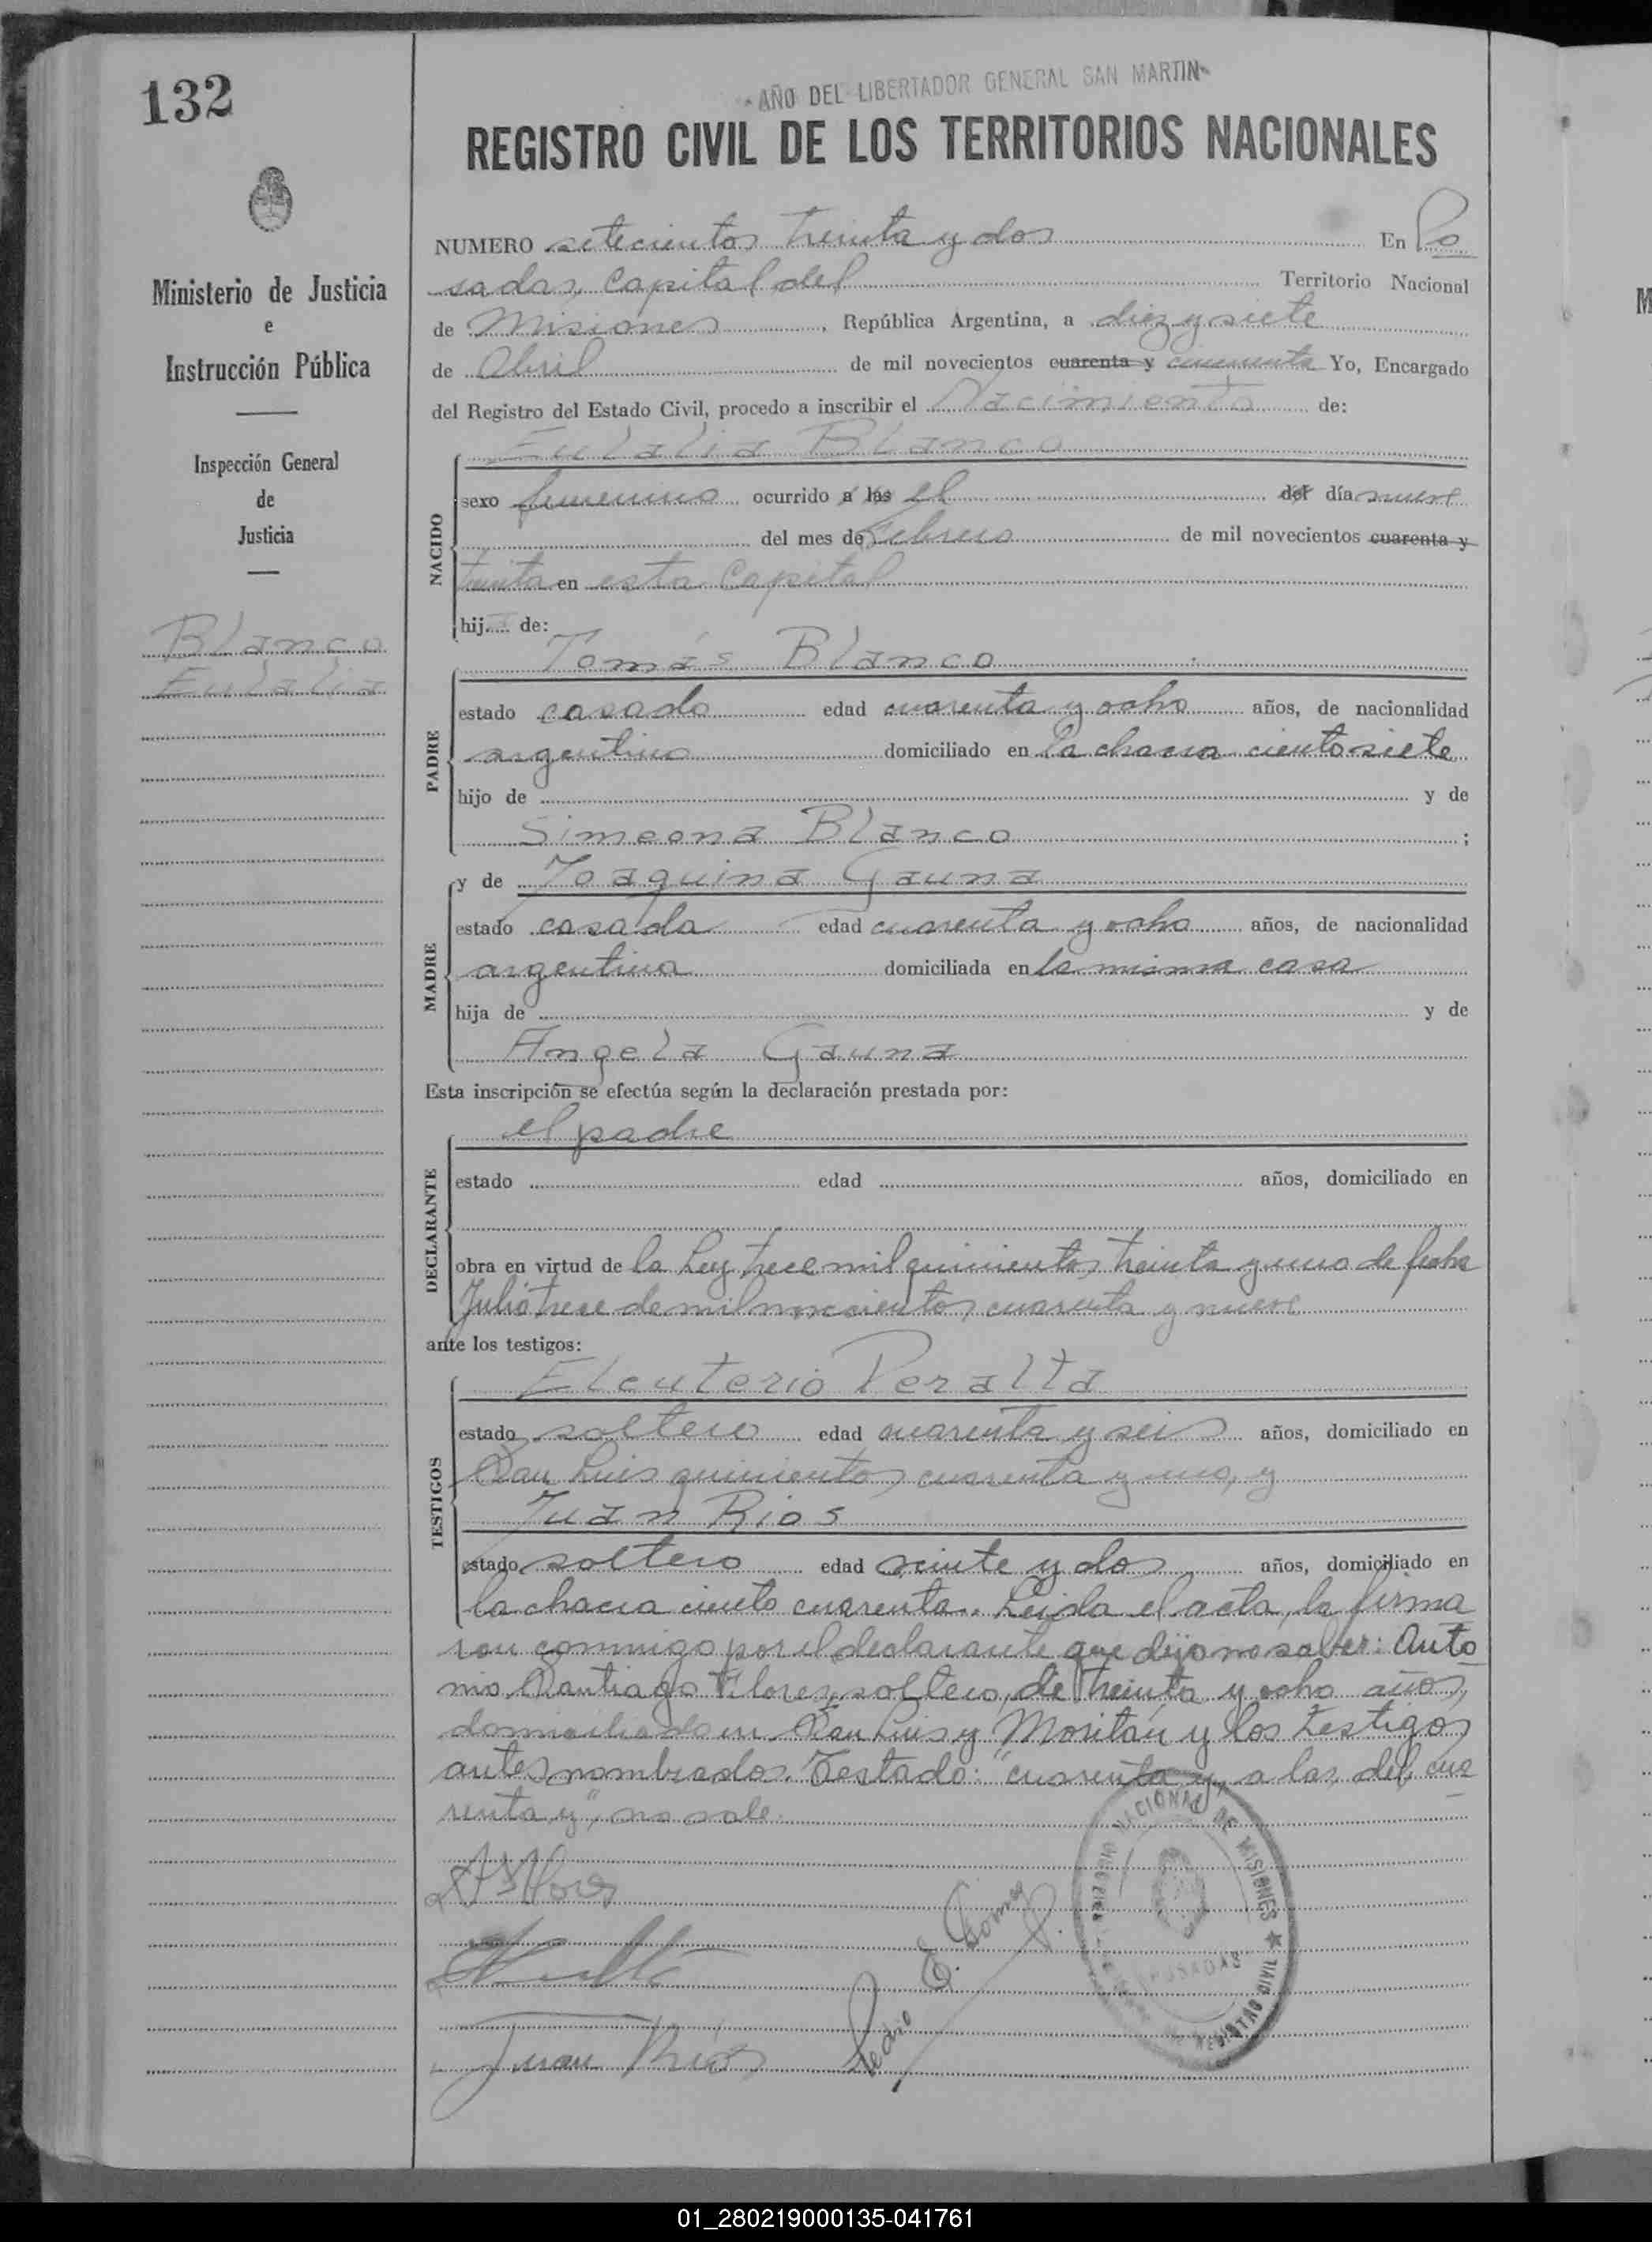 132
"AÑO DEL LIBERTADOR GENERAL SAN MARTIN"
REGISTRO CIVIL DE LOS TERRITORIOS NACIONALES
Ministerio de Justicia
e
Instrucción Pública
Inspección General
de
Justicia
Blanco
Eulalia
NUMERO setecientos treinta y dos En Po
sadas, Capital del Territorio Nacional
de Misiones, República Argentina, a diez y siete
de Abril de mil novecientos cuarenta y cincuenta Yo, Encargado
del Registro del Estado Civil, procedo a inscribir el Nacimiento de:
Eulalia Blanco
NACIDO
sexo femenino ocurrido a las el del día nueve
del mes de Febrero de mil novecientos cuarenta y
treinta en esta Capital
hij de:
Tomás Blanco
PADRE
estado casado edad cuarenta y ocho años, de nacionalidad
argentino domiciliado en la chacra ciento siete
hijo de y de
Simeona Blanco ;
y de Joaquina Gauna
MADRE
estado casada edad cuarenta y ocho años, de nacionalidad
argentina domiciliada en la misma casa
hija de y de
Angela Gauna
Esta inscripción se efectúa según la declaración prestada por:
el padre
DECLARANTE
estado edad años, domiciliado en
obra en virtud de la Ley trece mil quinientos treinta y uno de fecha
Julio trece de mil novecientos cuarenta y nueve
ante los testigos:
Eleuterio Peralta
TESTIGOS
estado soltero edad cuarenta y seis años, domiciliado en
San Luis quinientos cuarenta y uno, y
Juan Rios
estado soltero edad veinte y dos años, domiciliado en
la chacra ciento cuarenta. Leida el acta, la firma
ron conmigo por el declarante que dijo no saber: Anto
nio Santiago Flores, soltero, de treinta y ocho años,
domiciliado en San Luis y Moritán y los testigos
antes nombrados. Testado: "cuarenta y, a las, del, cua
renta y", no vale.
Juan Rios
Pedro E. Gomez
NACIONAL DE MISIONES ★ REGISTRO CIVIL
POSADAS
01_280219000135-041761